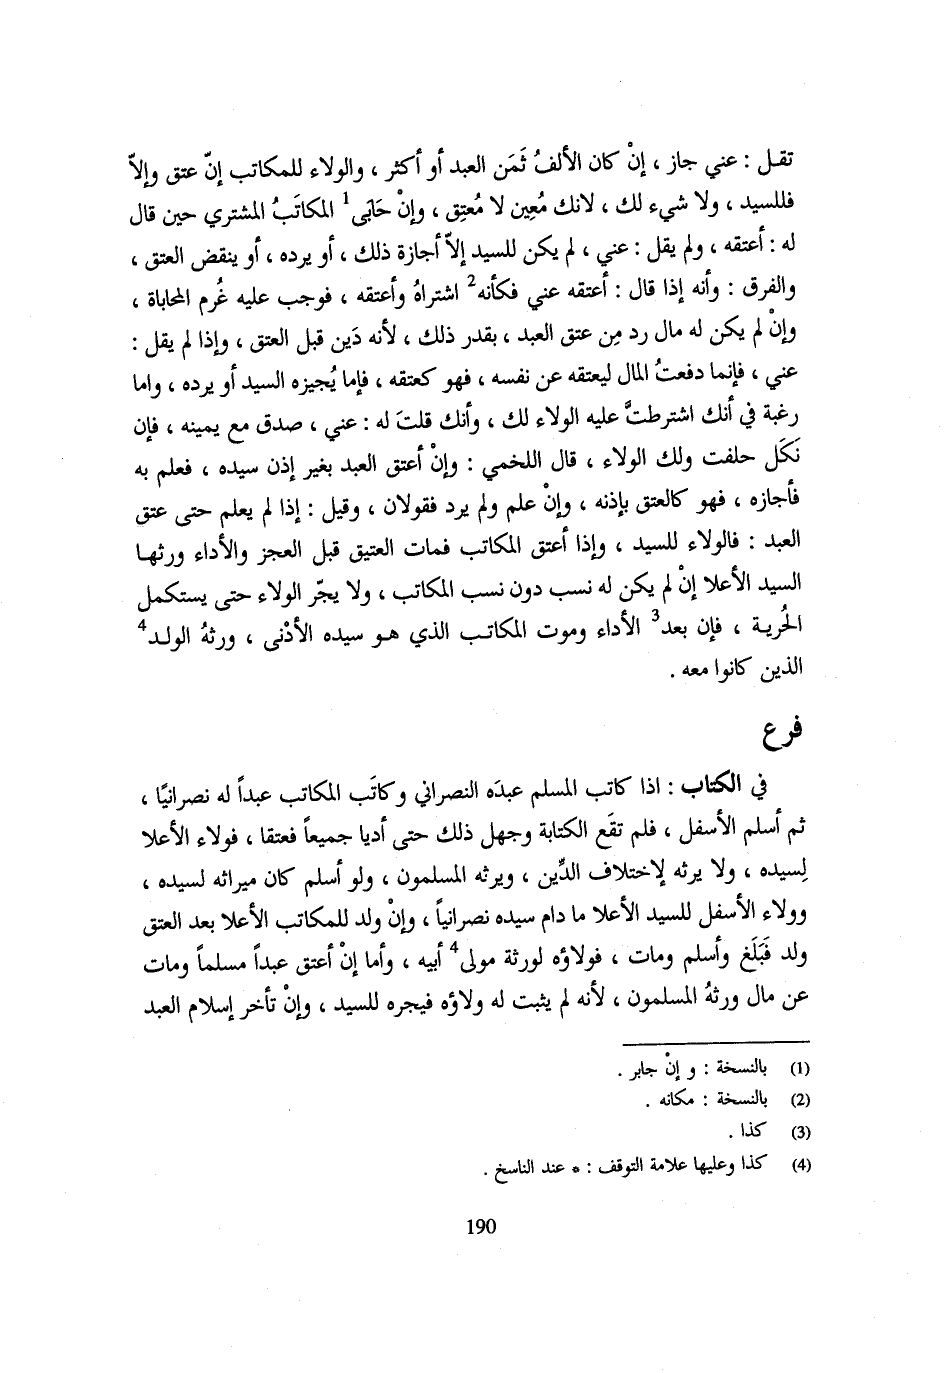 تقـل : عني جاز ، إنْ كان الألفُ ثَمَن العبد أو أكثر ، والولاء للمكاتب إنّ عتق وإلاّ
فللسيد ، ولا شيء لك ، لانك مُعِين لا مُعتِق ، وإنْ حَابَى1 المكاتَبُ المشتري حين قال
له : أعتقه ، ولم يقل : عني ، لم يكن للسيد إلاّ أجازة ذلك ، أو يرده ، أو ينقض العتق ،
والفرق : وأنه إذا قال : أعتقه عني فكأنه2 اشتراهُ وأعتقه ، فوجب عليه غُرم المحاباة ،
وإنْ لم يكن له مال رد مِن عتق العبد ، بقدر ذلك ، لأنه دَين قبل العتق ، وإذا لم يقل :
عني ، فإنما دفعتُ المال ليعتقه عن نفسه ، فهو كعتقه ، فإما يُجيزه السيد أو يرده ، واما
رغبة في أنك اشترطتَّ عليه الولاء لك ، وأنك قلتَ له : عني ، صدق مع يمينه ، فإن
نَكَل حلفت ولك الولاء ، قال اللخمي : وإنْ أعتق العبد بغير إذن سيده ، فعلم به
فأجازه ، فهو كالعتق بإذنه ، وإنْ علم ولم يرد فقولان ، وقيل : إذا لم يعلم حتى عتق
العبد : فالولاء للسيد ، وإذا أعتق المكاتب فمات العتيق قبل العجز والأداء ورثهـا
السيد الأعلا إنْ لم يكن له نسب دون نسب المكاتب ، ولا يجّر الولاء حتى يستكمـل
الحُريـة ، فإن بعد3 الأداء وموت المكاتـب الذي هـو سيده الأدْنى ، ورثهُ الولـد4
الذين كانوا معه .
فرع
في الكتاب : اذا كاتب المسلم عبدَه النصراني وكاتَب المكاتب عبداً له نصرانيًا ،
ثم أسلم الأسفل ، فلم تقَع الكتابة وجهل ذلك حتى أديا جميعاً فعتقا ، فولاء الأعلا
لِسيده ، ولا يرثه لاختلاف الدِّين ، ويرثه المسلمون ، ولو أسلم كان ميراثه لسيده ،
وولاء الأسفل للسيد الأعلا ما دام سيده نصرانياً ، وإنْ ولد للمكاتب الأعلا بعد العتق
ولد فَبَلَغ وأسلم ومات ، فولاؤه لورثة مولى4 أبيه ، وأما إنْ أعتق عبداً مسلماً ومات
عن مال ورثهُ المسلمون ، لأنه لم يثبت له ولاؤه فيجره للسيد ، وإنْ تأخر إسلام العبد
(1) بالنسخة : و إنْ جابر .
(2) بالنسخة : مكانه .
(3) كذا .
(4) كذا وعليها علامة التوقف : * عند الناسخ .
190